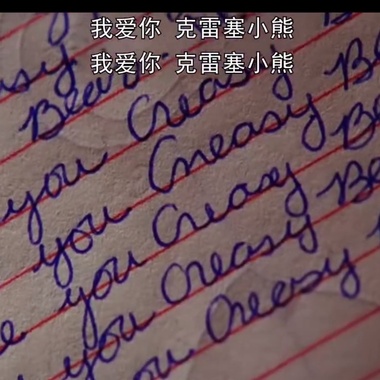 我爱你 克雷塞小熊
我爱你 克雷塞小熊
Bear
you Creasy Be
you Creasy Be
you Creasy Be
you Creasy Be
you Creasy